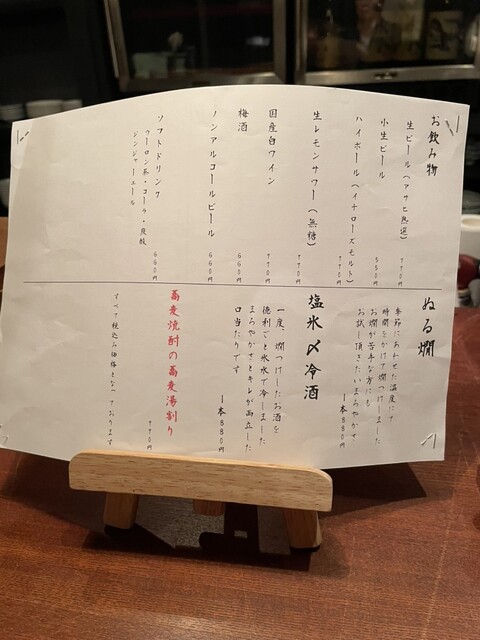 お飲み物
生ビール（アサヒ熟選）
770円
小生ビール
550円
ハイボール（イチローズモルト）
770円
生レモンサワー（無糖）
770円
国産白ワイン
770円
梅酒
660円
ノンアルコールビール
660円
ソフトドリンク
660円
ウーロン茶・コーラ・炭酸
ジンジャーエール
ぬる燗
季節にあわせた温度にて
時間をかけて燗つけしました
お燗が苦手な方にも
お試し頂きたいまろやかさ
1本880円
塩氷〆冷酒
一度、燗つけしたお酒を
徳利ごと氷水で冷しました
まろやかさとキレが両立した
口当たりです
1本880円
蕎麦焼酎の蕎麦湯割り
770円
すべて税込み価格となっております